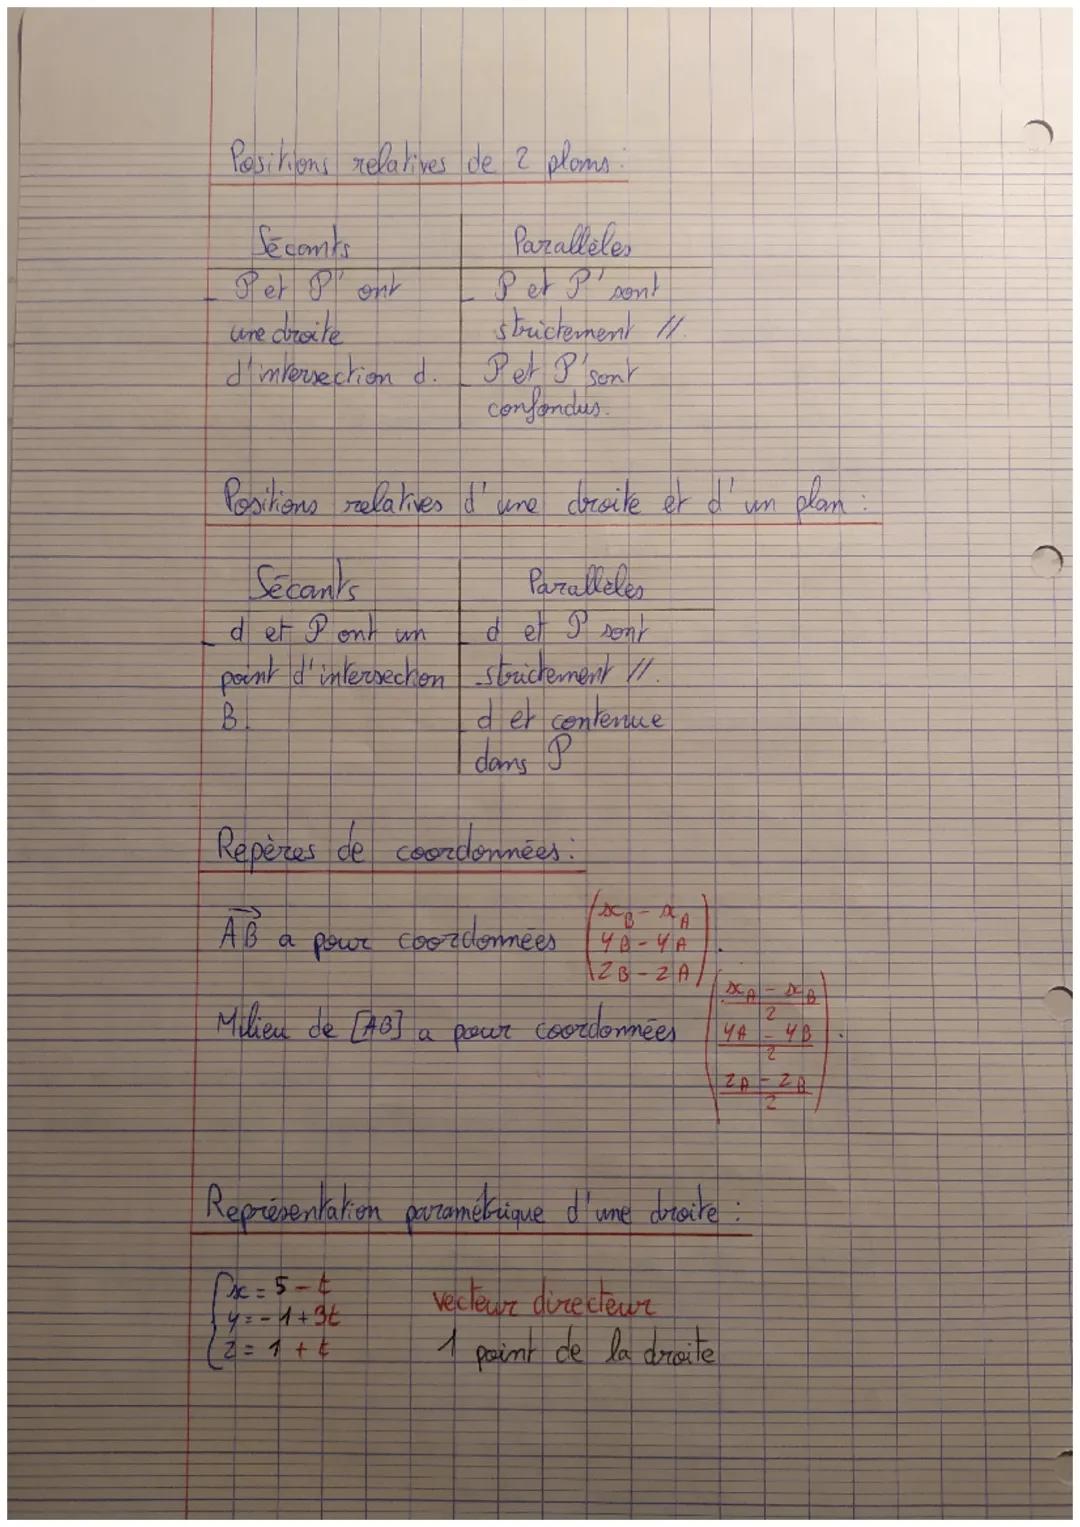 Positions relatives de 2 plans :
Sécants
Parallèles
- P et P' ont
une droite
d'intersection d.
- P et P' sont
strictement //.
- P et P' sont
confondus.
Positions relatives d'une droite et d'un plan :
Sécants
Parallèles
- d et P ont un
point d'intersection
B.
- d et P sont
strictement //.
- d et contenue
dans P
Repères de coordonnées :
AB a pour coordonnées
xB - xA
yB - yA
zB - zA
.
Milieu de [AB] a pour coordonnées
xA - xB
2
yA - yB
2
zA - zB
2
.
Représentation paramétrique d'une droite :
x = 5 - t
y = -1 + 3t
z = 1 + t
vecteur directeur
1 point de la droite